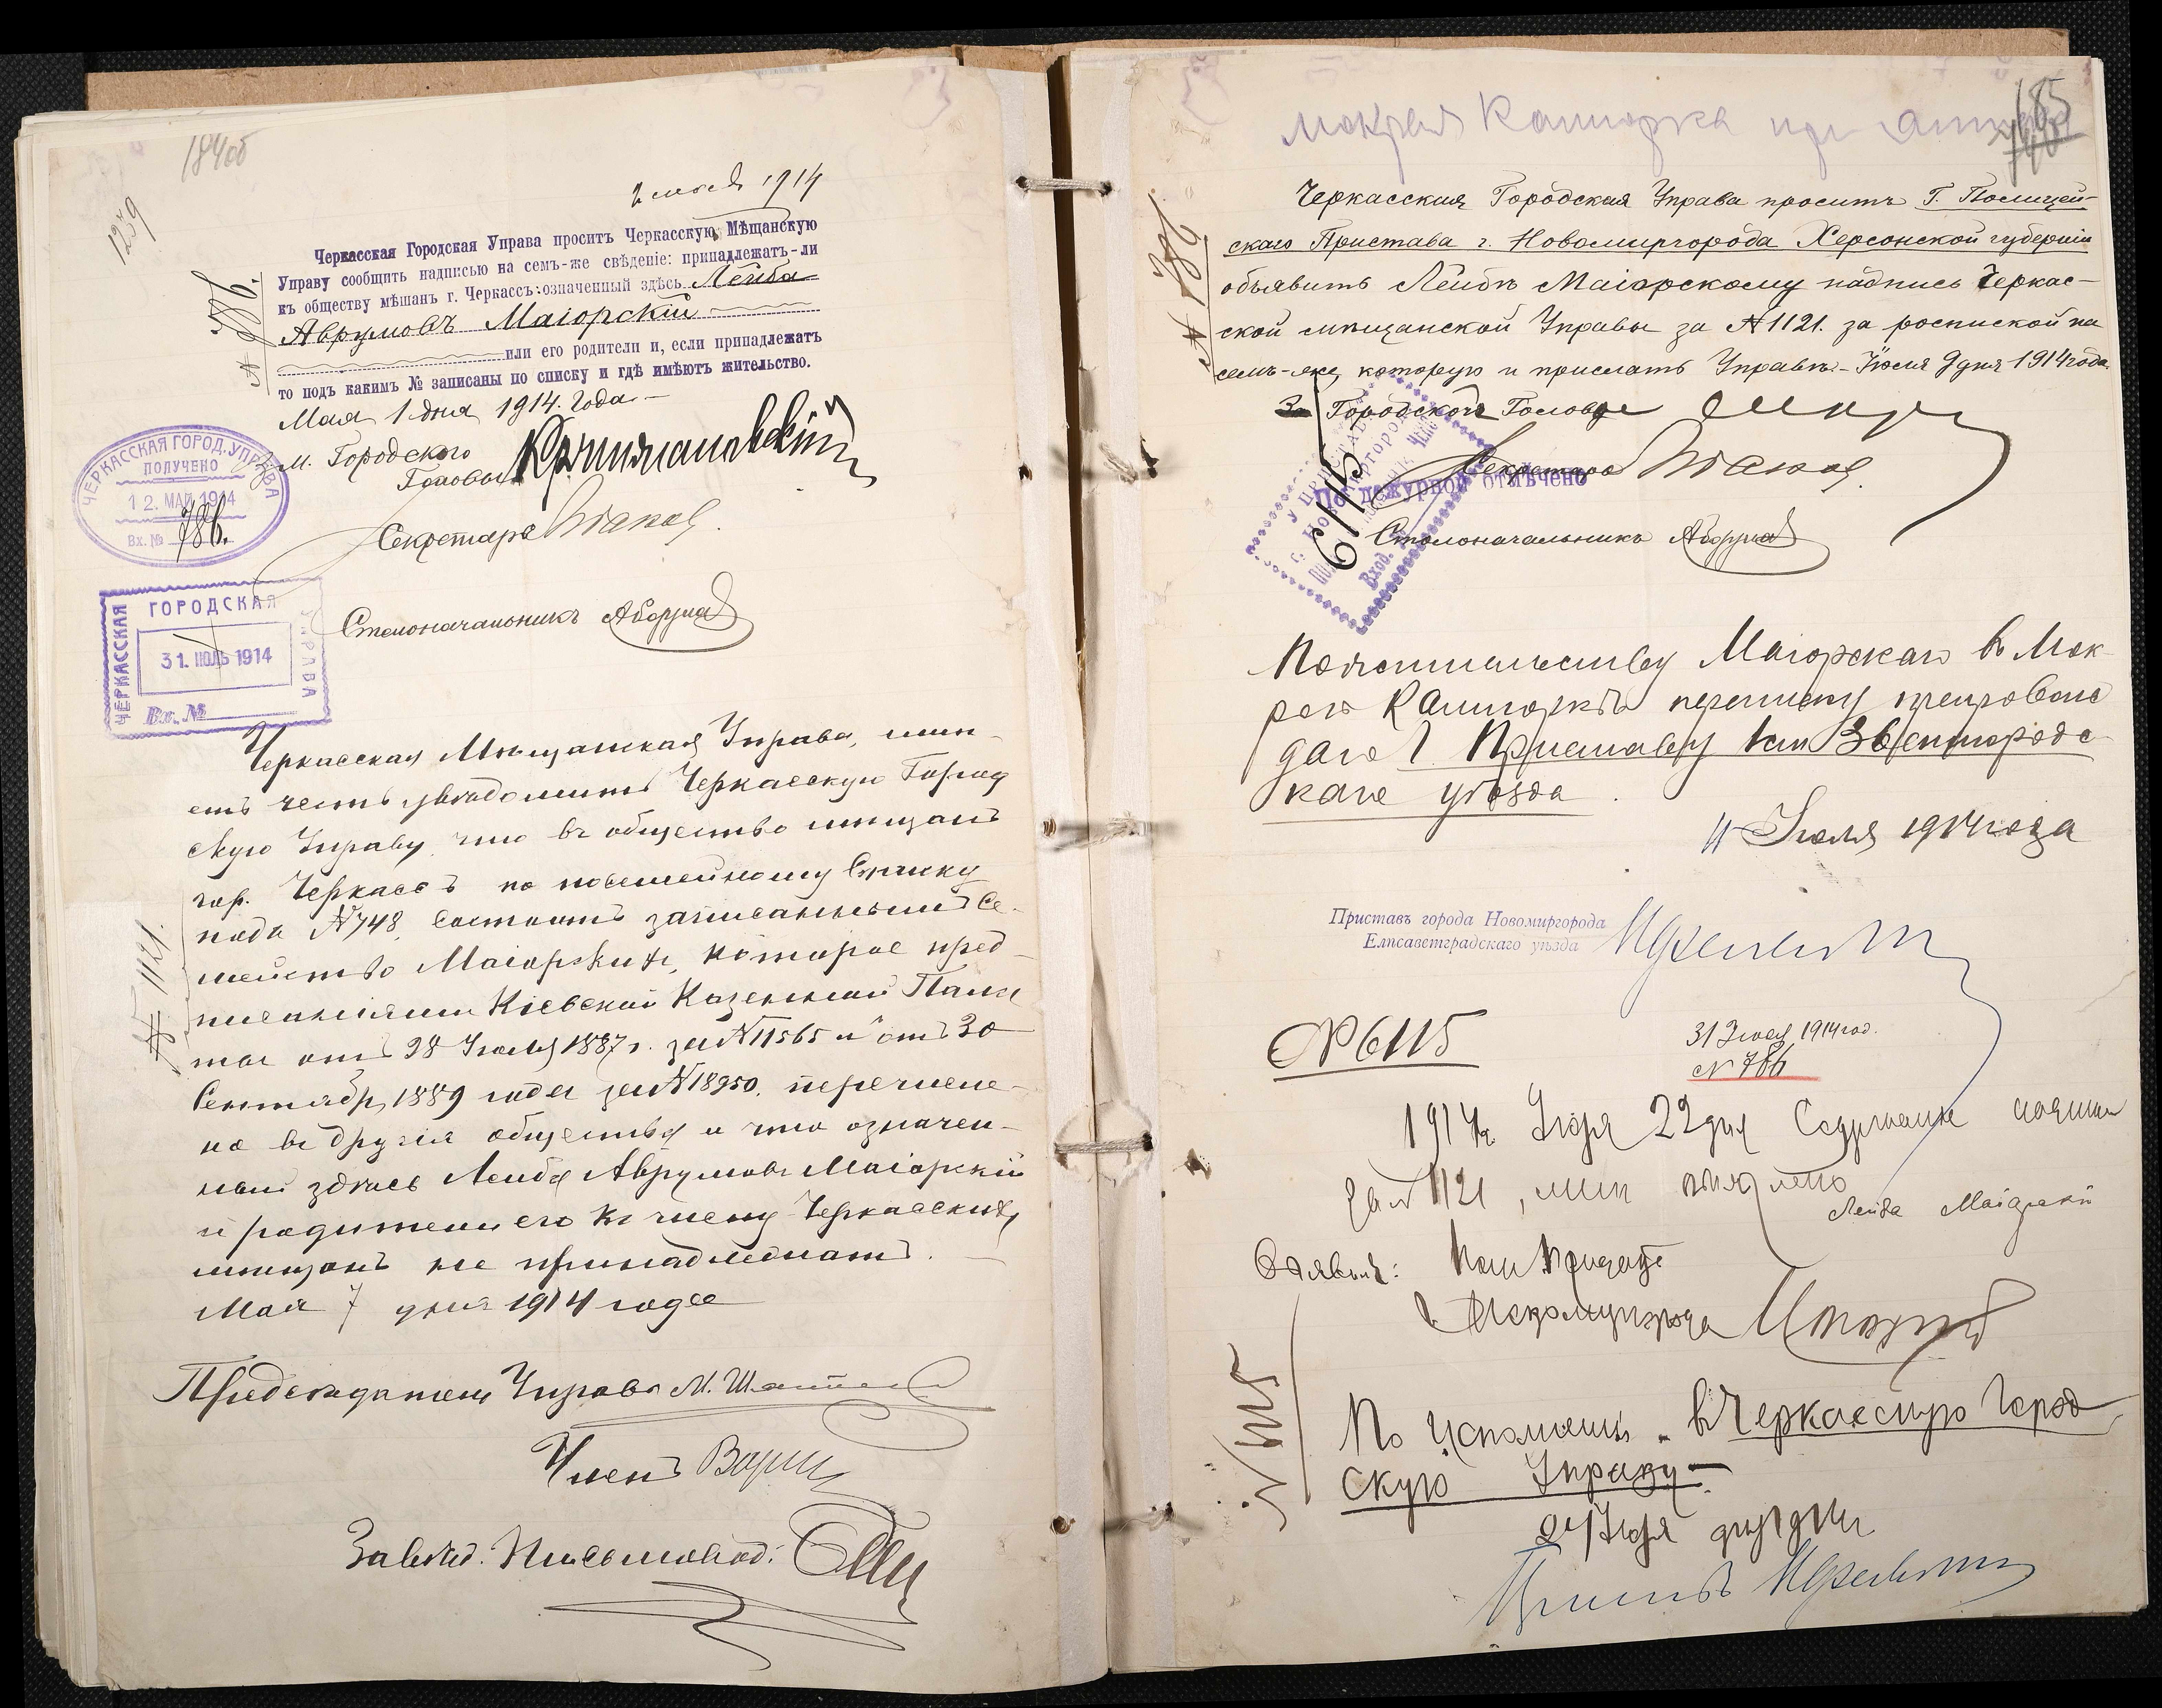 184об
1239
2 мая 1914
Черкасская Городская Управа проситъ Черкасскую Мѣщанскую
Управу сообщить надписью на семъ-же свѣденіе: принадлежатъ-ли
къ обществу мѣщанъ г. Черкассъ: означенный здѣсь Лейба
Аврумовъ Маіорскій
или его родители и, если принадлежатъ
то подъ какимъ № записаны по списку и гдѣ имѣютъ жительство.
№ 786.
Мая 1 дня 1914 года
Городского
Головы
Секретарь
Столоначальникъ
ЧЕРКАССКАЯ ГОРОД. УПРАВА
ПОЛУЧЕНО
12. МАЙ 1914
Вх. № 786.
ЧЕРКАССКАЯ ГОРОДСКАЯ УПРАВА
31. ІЮЛЬ 1914
Вх. №
Черкасская Мѣщанская Управа, имѣ-
етъ честь увѣдомить Черкасскую Город
скую Управу, что въ обществѣ мѣщанъ
гор. Черкассъ по посемейному списку
подъ №748, состоитъ записаннымъ се-
мейство Маіорскихъ, которое пред-
писаніями Кіевской Казенной Пала
ты отъ 28 Іюля 1887 г. за №11565 и отъ 30
Сентября 1889 года за №18950, перечисле-
но въ другія общества и что означен-
ный здѣсь Лейба Аврумовъ Маіорскій
и родители его къ числу Черкасскихъ
мѣщанъ не принадлежатъ.
№ 1121.
Мая 7 дня 1914 года
Предсѣдатель Управы М.
Членъ
Завѣд. Письмовод:
Мокрая Калигорка
185
Черкасская Городская Управа проситъ Г. Полицей-
скаго Пристава г. Новомиргорода Херсонской губерніи
объявить Лейбѣ Маіорскому надпись Черкас-
ской мѣщанской Управы за №1121. за роспиской на
семъ-же, которую и прислать Управѣ.- Іюля 9 дня 1914 года.
№ 786.
Городской Голова
Секретарь
По дежурной отмѣчено
6115
Вход.
Столоначальникъ
По жительству Маіорскаго въ Мок
рой Калигоркѣ переписку препровож
даю Г. Приставу 1 ст Звенигородс
каго уѣзда.
11 Іюля 1914 года
Приставъ города Новомиргорода
Елисаветградскаго уѣзда
№6115
31 Іюля 1914 год.
№ 786
1914 г. Іюля 22 дня Содержаніе
за № 1121, мнѣ объявлено
Лейба Маіорскій
Объявилъ:
По исполненіи въ Черкасскую Город
скую Управу
24 Іюля